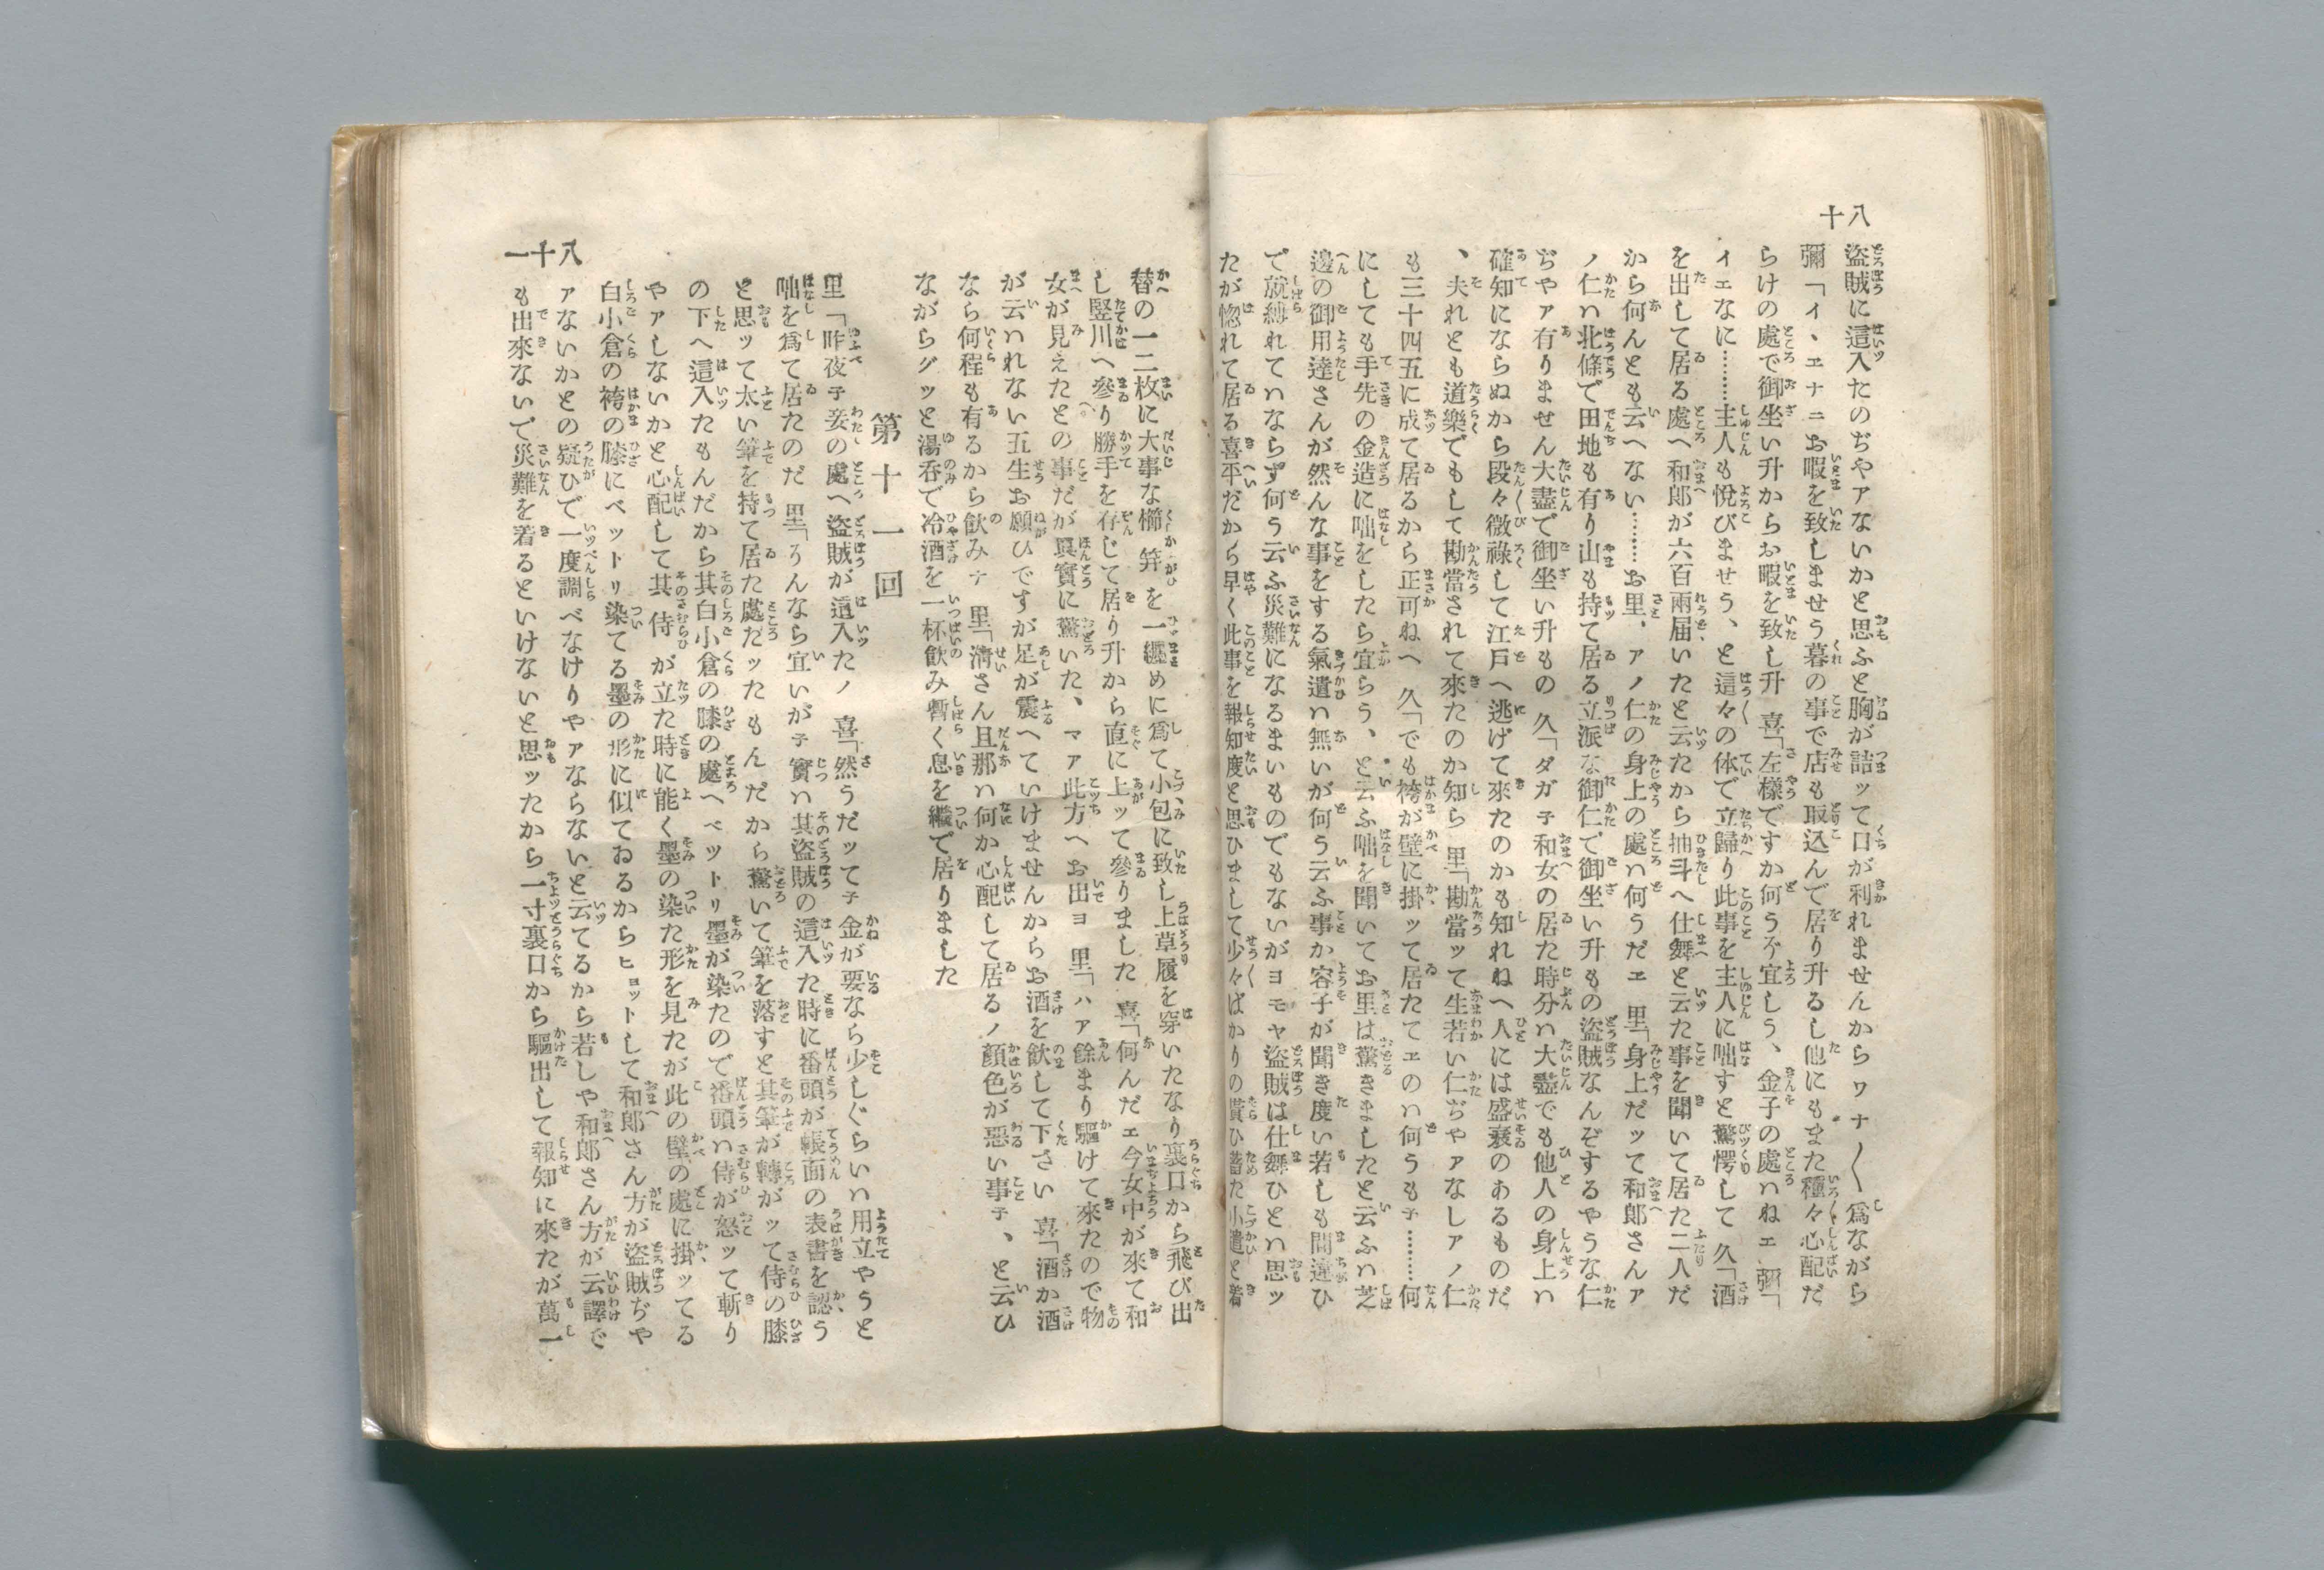 八十
盗賊に這入たのぢやアないかと思ふと胸が詰ッて口が利れませんからワナ〳〵爲ながら
彌「イヽヱナニお暇を致しませう暮の事で店も取込んで居り升るし他にもまた種々心配だ
らけの處で御坐い升からお暇を致し升 喜「左樣ですか何うぞ宜しう、金子の處ハねヱ 彌「
イエなに………主人も悅びませう、と這々の体で立歸り此事を主人に咄すと驚愕して 久「酒
を出して居る處へ和郎が六百兩届いたと云たから抽斗へ仕舞と云た事を聞いて居た二人だ
から何んとも云へない………お里、アノ仁の身上の處ハ何うだヱ 里「身上だッて和郎さんア
ノ仁ハ北條で田地も有り山も持て居る立派な御仁で御坐い升もの盗賊なんぞするやうな仁
ぢやア有りません大盡で御坐い升もの 久「ダガ子和女の居た時分ハ大盡でも他人の身上ハ
確知にならぬから段々微祿して江戸へ逃げて來たのかも知れねへ人には盛衰のあるものだ
、夫れとも道樂でもして勘當されて來たのか知ら 里「勘當ッて生若い仁ぢやアなしアノ仁
も三十四五に成て居るから正可ねへ 久「でも袴が壁に掛ッて居たてヱのハ何うも子………何
にしても手先の金造に咄をしたら宜らう、と云ふ咄を聞いてお里は驚きましたと云ふハ芝
邊の御用達さんが然んな事をする氣遣ハ無いが何う云ふ事か容子が聞き度い若しも間違ひ
で就縛れてハならず何う云ふ災難になるまいものでもないがヨモヤ盗賊は仕舞ひとハ思ッ
たが惚れて居る喜平だから早く此事を報知度と思ひまして少々ばかりの貰ひ蓄た小遣と着
替の一二枚に大事な櫛笄を一纏めに爲て小包に致し上草履を穿いたなり裏口から飛び出
し竪川へ參り勝手を存じて居り升から直に上ッて參りました 喜「何んだェ今女中が來て和
女が見えたとの事だが眞實に驚いた、マア此方へお出ヨ 里「ハア餘まり驅けて來たので物
が云ハれない五生お願ひですが足が震へていけませんからお酒を飮して下さい 喜「酒か酒
なら何程も有るから飮み子 里「淸さん且那ハ何か心配して居るノ顏色が惡い事子、と云ひ
ながらグッと湯呑で冷酒を一杯飮み暫く息を繼で居りました
第十一回
里「昨夜子妾の處へ盗賊が這入たノ 喜「然うだッて子金が要なら少しぐらいハ用立やうと
咄を爲て居たのだ 里「うんなら宜いが子實ハ其盗賊の這入た時に番頭が帳面の表書を認う
と思ッて太い筆を持て居た處だッたもんだから驚いて筆を落すと其筆が轉がッて侍の膝
の下へ這入たもんだから其白小倉の膝の處へベツトリ墨が染たので番頭ハ侍が怒ッて斬り
やアしないかと心配して其侍が立た時に能く墨の染た形を見たが此の壁の處に掛ッてる
白小倉の袴の膝にベットリ染てる墨の形に似てゐるからヒョットして和郎さん方が盗賊ぢや
アないかとの疑ひで一度調べなけりやアならないと云てるから若しや和郎さん方が云譯で
も出來ないで災難を着るといけないと思ッたから一寸裏口から驅出して報知に來たが萬一
八十一